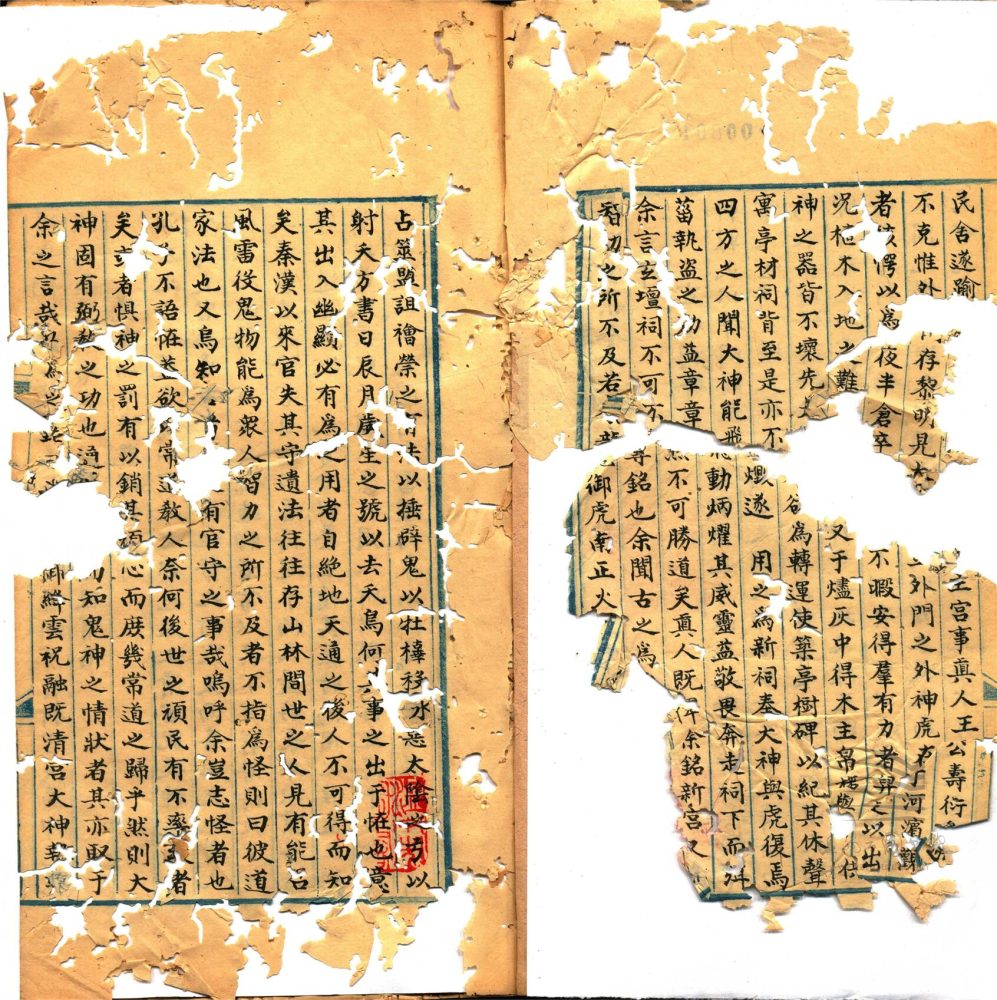 民舍遂踰主宮事真人王公壽衍
不克惟外存黎明見大外門之外神虎河濱
者駭愕以為夜半倉卒不暇安得羣有力者舁之以出
况植木入地之難又于燼灰中得木主帛
神之器皆不壞先為轉運使築亭樹碑以紀其休聲
寓亭材祠皆至是亦不燬遂用之為新祠奉大神與虎復焉
四方之人聞大神能飛動炳燿其威靈益敬畏奔走祠下而
菑執盜之功益章章不可勝道矣真人既余銘新宮又
余言玄壇祠不可不尊銘也余聞古之為
智力之所不及若御虎南正火
占筮盟詛禬禜之有法以捶辟鬼以牡橭移水太陰之弓以
射天方書日辰月歲星之號以去夭鳥何事之出于怪也意
其出入幽顯必有為之用者自絕地天通之後人不可得而知
矣秦漢以來官失其守遺法往往存山林間世之人見有能召
風雷役鬼物能為衆人智力之所不及者不指為怪則曰彼道
家法也又烏知有官守之事哉嗚呼余豈志怪者也
孔子不語怪蓋欲常道教人奈何後世之頑民有不率者
矣者惧神之罰有以銷其頑心而庶幾常道之歸乎然則大
神固有弼教之功也而知鬼神之情狀者其亦取于
余之言哉絳雲祝融既清宮大神